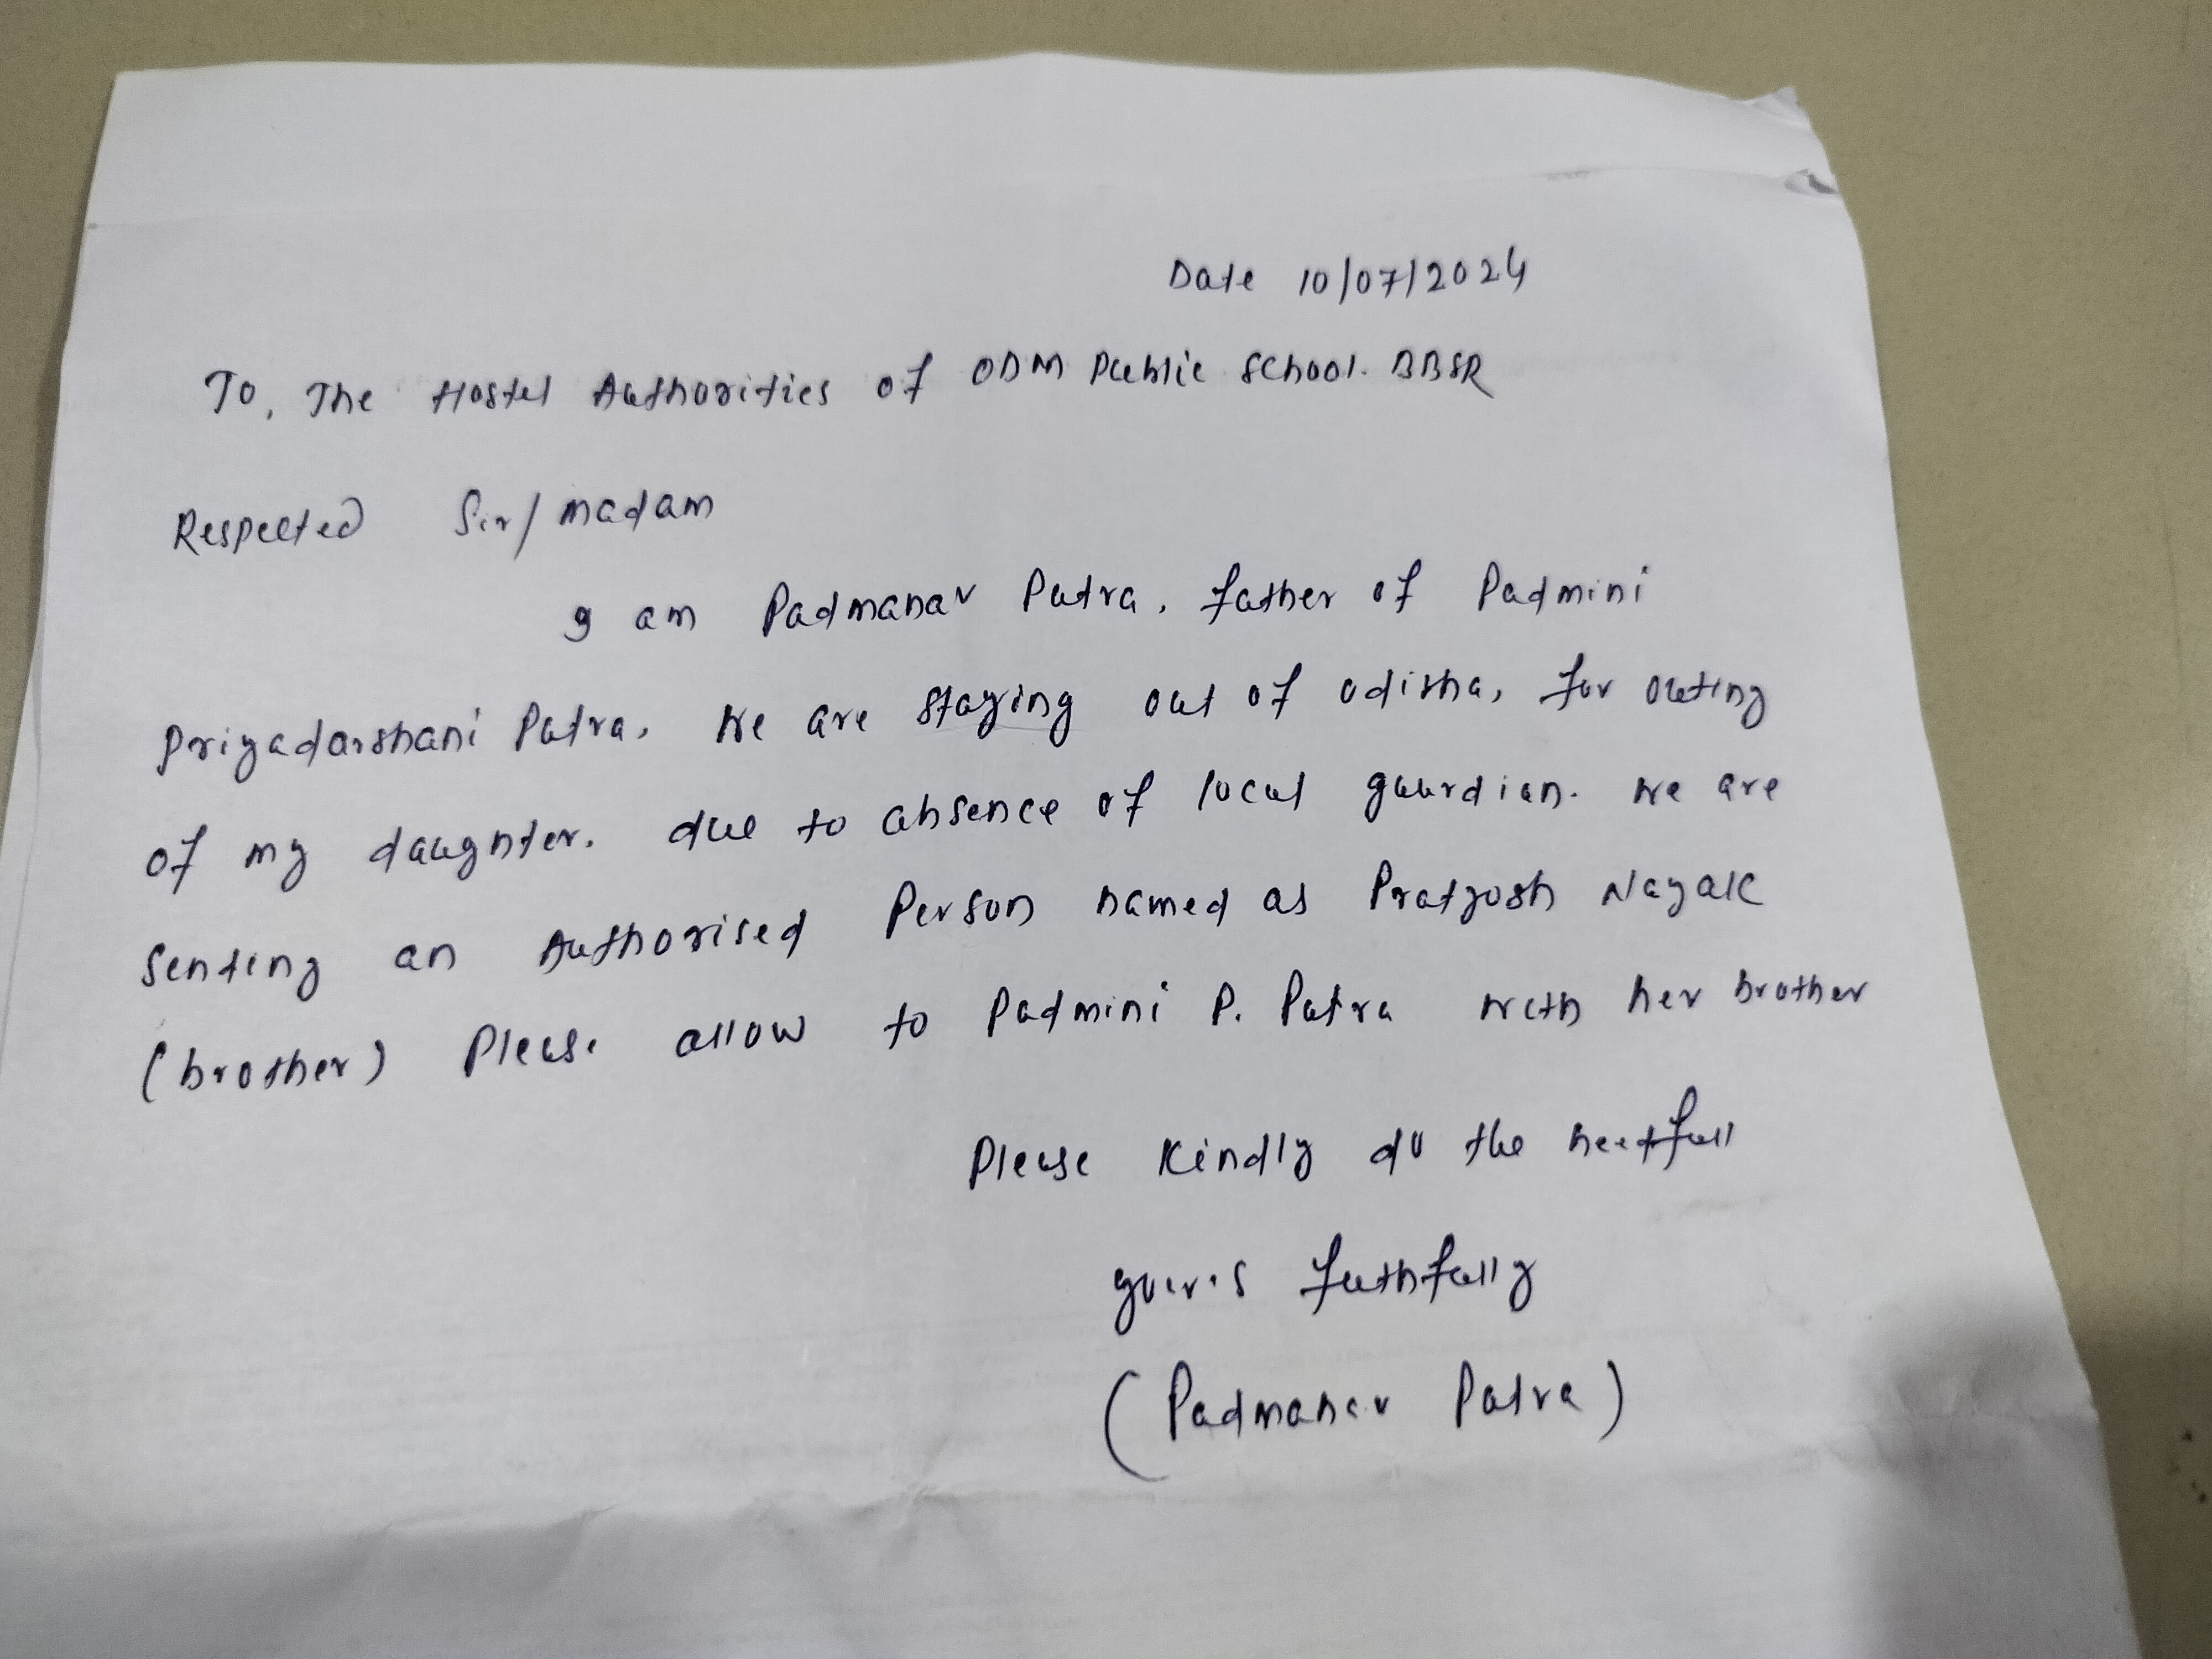 Date 10/07/2024
To, The Hostel Authorities of ODM Public School. BBSR
Respected Sir/madam
I am Padmanav Patra, father of Padmini
Priyadarshani Patra. We are staying out of odisha, for outing
of my daughter. due to absence of local guardian. We are
sending an Authorised Person named as Pratyosh Nayak
(brother) Please allow to Padmini P. Patra with her brother
Please Kindly do the needfull
yours faithfully
(Padmanav Patra)